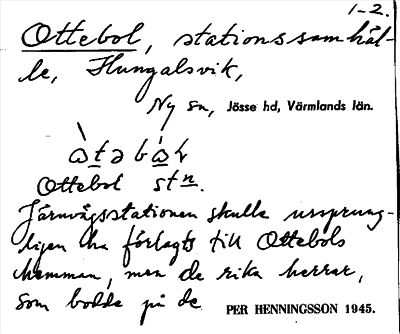 1-2.
Ottebol, stationssamhäl-
le, Hungalsvik,
Ny sn, Jösse hd, Värmlands län.
Ottebol stn.
Järnvägsstationen skulle ursprung-
ligen ha förlagts till Ottebols
hemman, men de rika herrar,
som bodde på de
PER HENNINGSSON 1945.